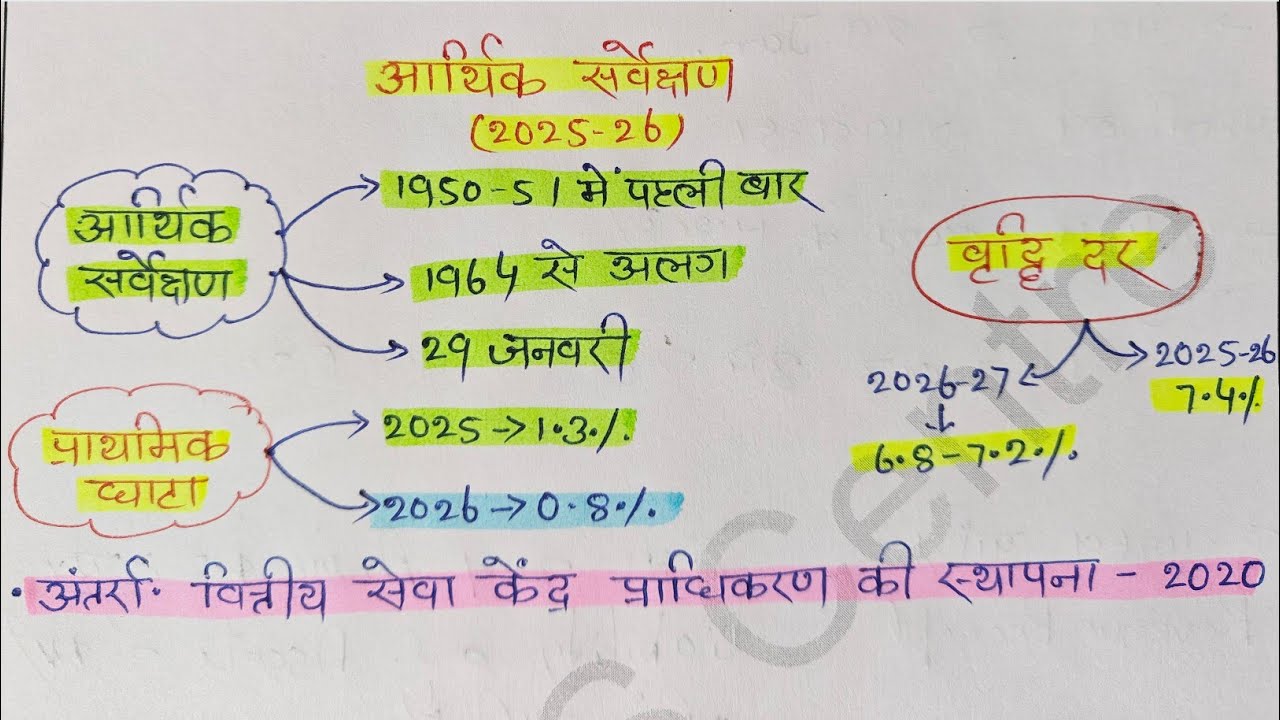 आर्थिक सर्वेक्षण
(2025-26)
आर्थिक
सर्वेक्षण
1950-51 में पहली बार
1964 से अलग
29 जनवरी
वृद्धि दर
2025-26
7.4%
2026-27
6.8-7.2%
प्राथमिक
घाटा
2025→1.3%
2026→0.8%
• अंतर्रा. वित्तीय सेवा केंद्र प्राधिकरण की स्थापना - 2020
Centre